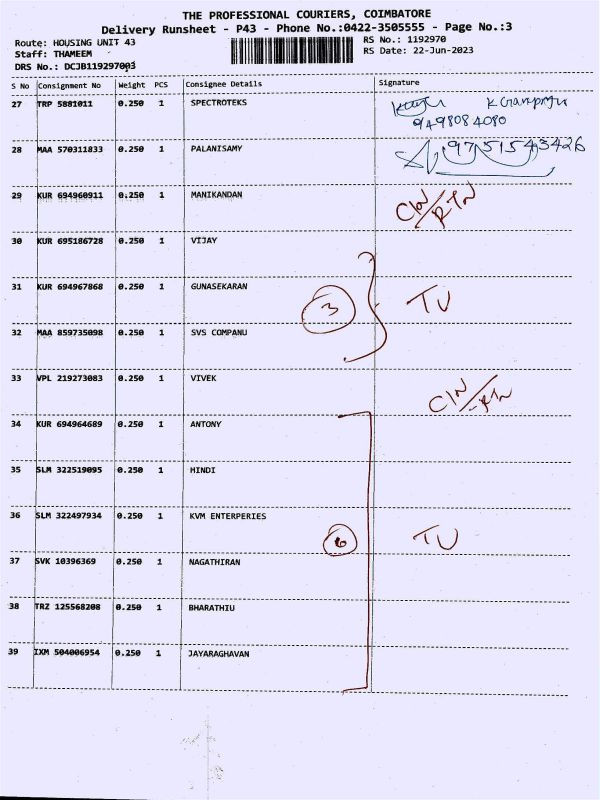 THE PROFESSIONAL COURIERS, COIMBATORE
Delivery Runsheet - P43 - Phone No.:0422-3505555 - Page No.:3
Route: HOUSING UNIT 43 RS No.: 1192970
Staff: THAMEEM RS Date: 22-Jun-2023
DRS No.: DCJB119297003
S No Consignment No Weight PCS Consignee Details Signature
27 TRP 5881011 0.250 1 SPECTROTEKS
9498084080
28 MAA 570311833 0.250 1 PALANISAMY 9751543426
29 KUR 694960911 0.250 1 MANIKANDAN CIN/RTN
30 KUR 695186728 0.250 1 VIJAY
31 KUR 694967868 0.250 1 GUNASEKARAN 3 TU
32 MAA 859735098 0.250 1 SVS COMPANU
33 VPL 219273083 0.250 1 VIVEK CIN/RTN
34 KUR 694964689 0.250 1 ANTONY
35 SLM 322519095 0.250 1 HINDI
36 SLM 322497934 0.250 1 KVM ENTERPERIES 6 TU
37 SVK 10396369 0.250 1 NAGATHIRAN
38 TRZ 125568208 0.250 1 BHARATHIU
39 IXM 504006954 0.250 1 JAYARAGHAVAN